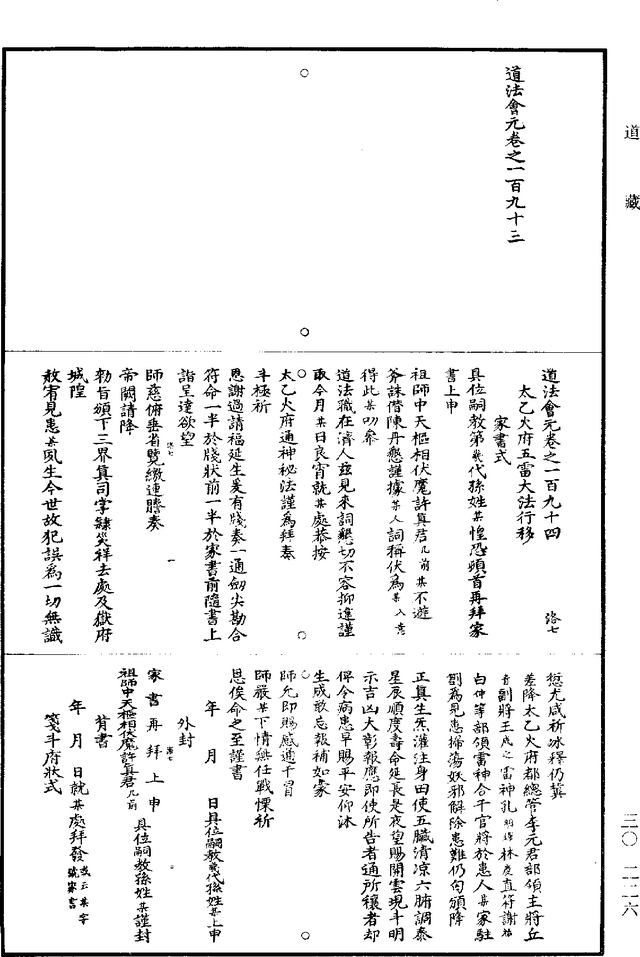 道藏
道法會元卷之一百九十三
道法會元卷之一百九十四
洛七
太乙火府五雷大法行移
家書式
具位嗣教第幾代孫姓某惶恐頓首再拜家
書上申
祖師中天樞相伏魔許真君几前某不避
斧誅僭陳丹懇謹據某人詞稱伏為某入意
得此某叨黍
道法職在濟人茲見來詞懇切不容抑遏謹
取今月某日良宵就某處恭按
太乙火府通神秘法謹為拜奏
斗極祈
恩謝過請福延生爰有牋奏一通劍尖勘合
符命一半於牋狀前一半於家書前隨書上
詣呈達欲望
師慈俯垂省覽繳連謄奏
洛七
一
帝闕請降
勑旨頒下三界真司掌隸災祥去處及嶽府
城隍
敢宥見患某夙生今世故犯誤為一切無識
愆尤咸祈冰釋仍冀
差降太乙火府都總管李元君部領主將丘
青副將王成之雷神孔明珪林夋直符謝祐
白仲等部領雷神合干官將於患人某家駐
劄為見患掃蕩妖邪解除患難仍勾頒降
正真生炁灌注身田使五臟清凉六腑調泰
星辰順度壽命延長是夜望賜開雲現斗明
示吉凶大彰報應即使所告者通所禳者却
俾令病患早賜平安仰沐
生成敢忘報補如蒙
師允即賜感通干冒
師嚴某下情無任戰慄祈
恩俟命之至謹書
年月日具位嗣教幾代孫姓某上申
外封
洛七
家書再拜上申具位嗣教孫姓某謹封
祖師中天樞相伏魔許真君几前
背書
年月日就某處拜發或云某字號家書
箋斗府狀式
三〇二二六